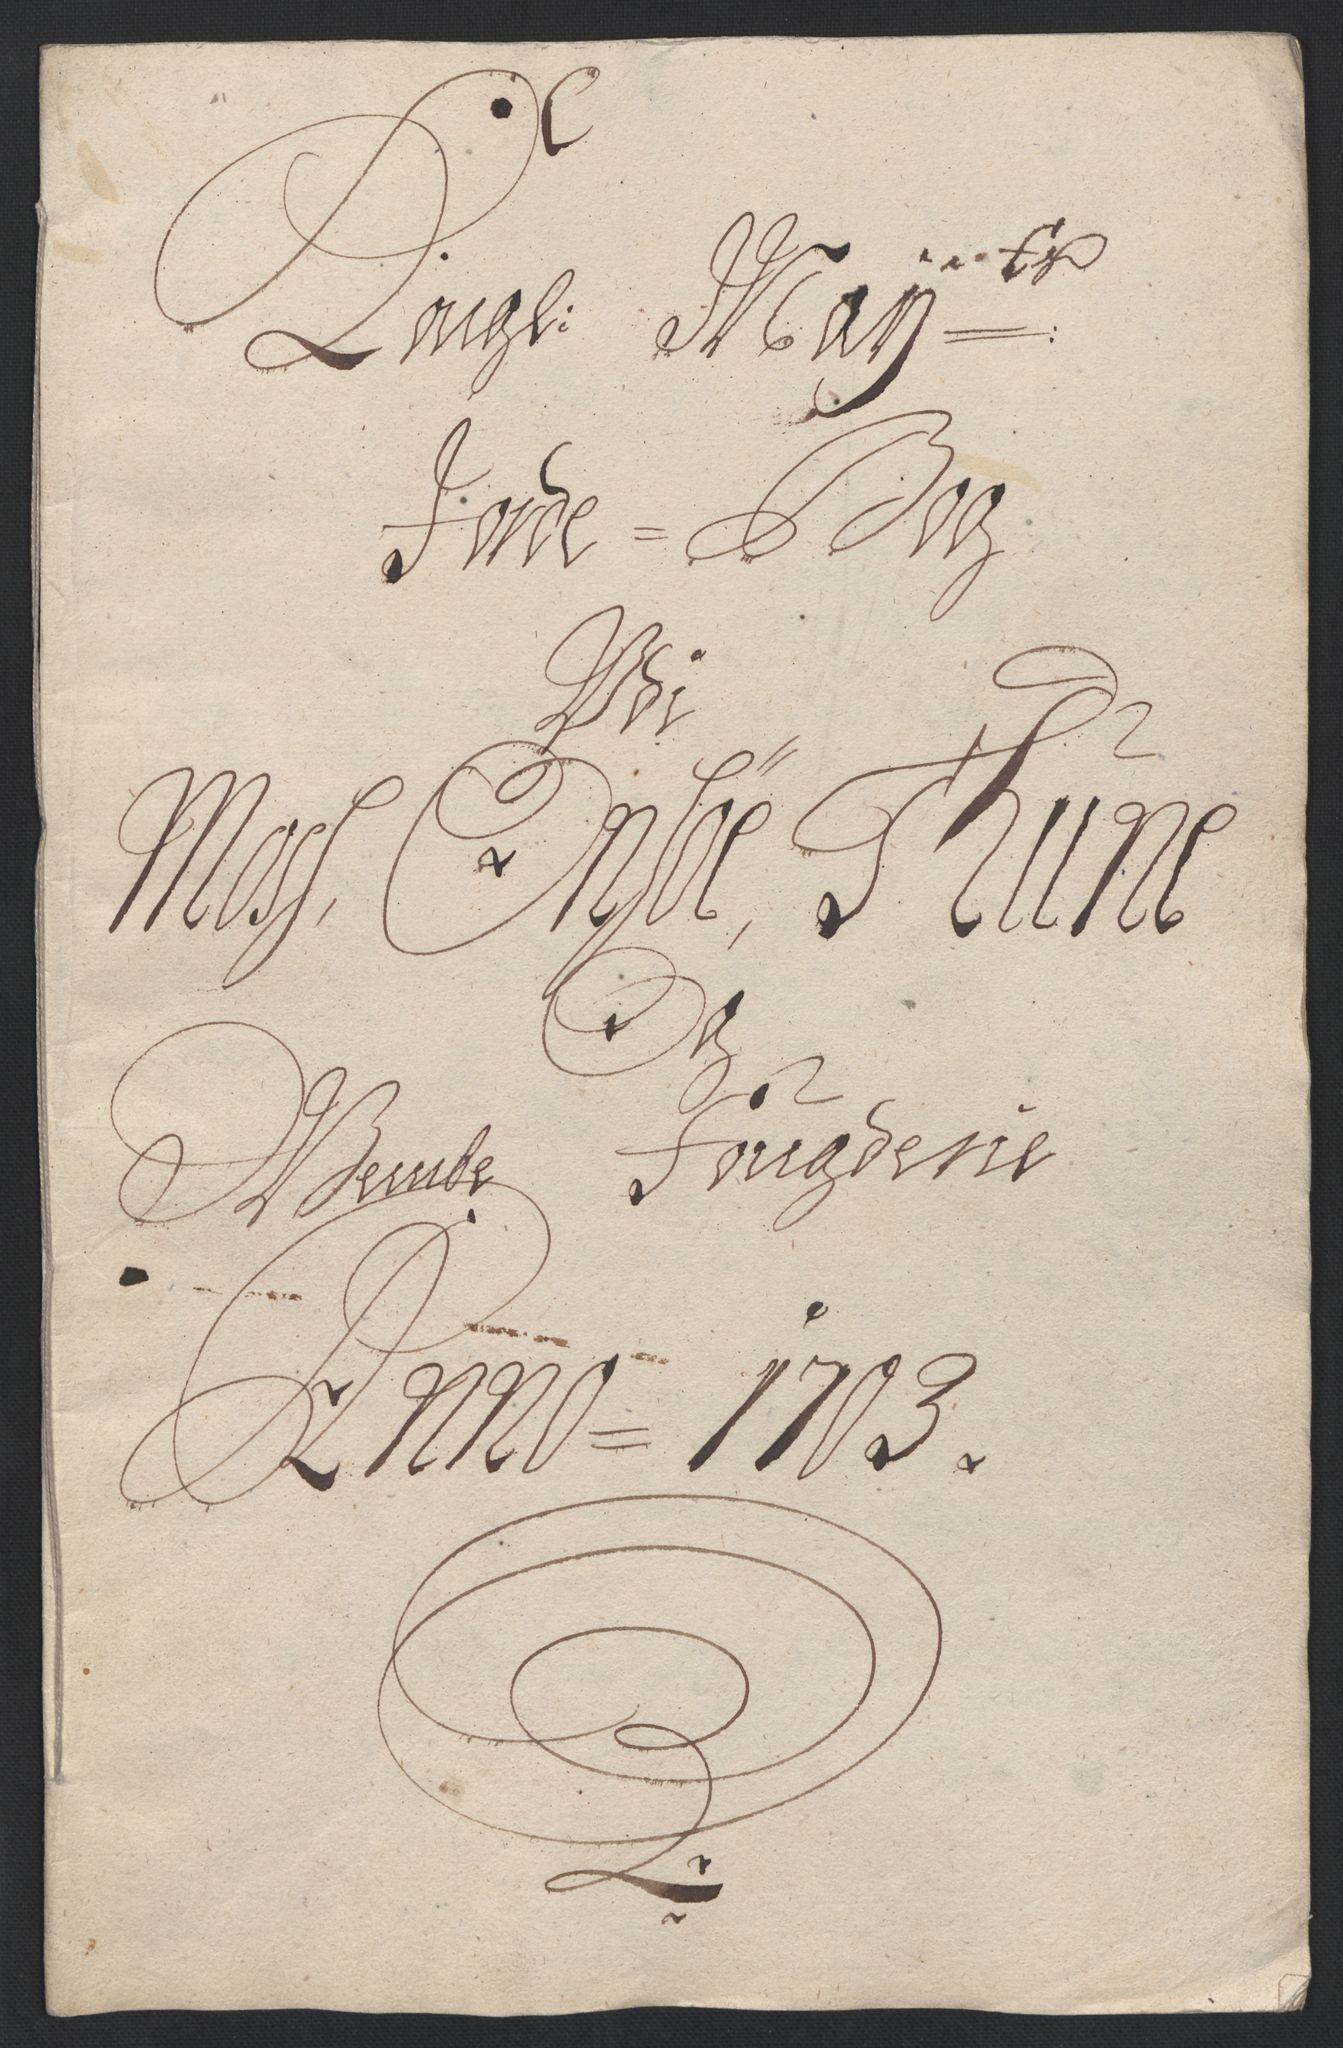 Kongl: Maÿ=tz:
Jorde=Bog
Udi
Moss, Onsöe, Thune
Og
Wembe Fougderie
Anno=1703.